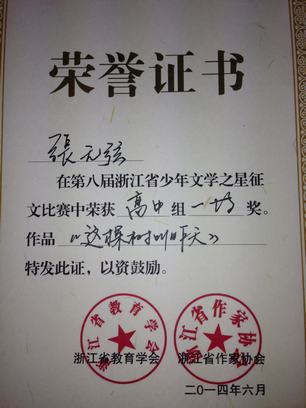 荣誉证书
張元弦
在第八届浙江省少年文学之星征
文比赛中荣获 高中 组 一等 奖。
作品 《这棵树叫昨天》
特发此证，以资鼓励。
浙江省教育学会
浙江省作家协会
浙江省教育学会 浙江省作家协会
二〇一四年六月